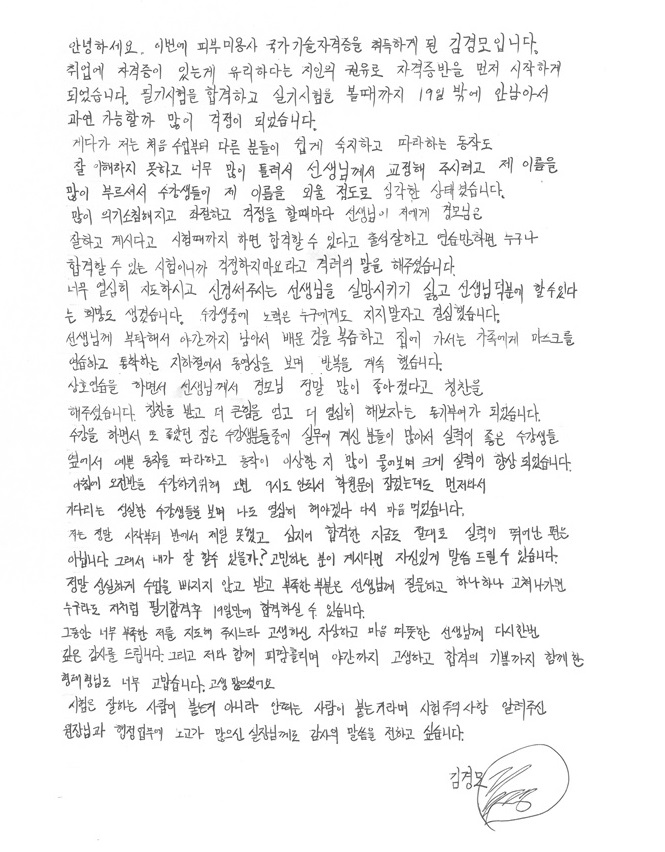 안녕하세요. 이번에 피부미용사 국가기술자격증을 취득하게 된 김경모입니다.
취업에 자격증이 있는게 유리하다는 지인의 권유로 자격증반을 먼저 시작하게
되었습니다. 필기시험을 합격하고 실기시험을 볼때까지 19일 밖에 안남아서
과연 가능할까 많이 걱정이 되었습니다.
게다가 저는 처음 수업부터 다른 분들이 쉽게 숙지하고 따라하는 동작도
잘 이해하지 못하고 너무 많이 틀려서 선생님께서 교정해 주시려고 제 이름을
많이 부르셔서 수강생들이 제 이름을 외울 정도로 심각한 상태였습니다.
많이 의기소침해지고 좌절하고 걱정을 할때마다 선생님이 저에게 경모님은
잘하고 계시다고 시험때까지 하면 합격할 수 있다고 출석잘하고 연습만하면 누구나
합격할 수 있는 시험이니까 걱정하지마요라고 격려의 말을 해주셨습니다.
너무 열심히 지도하시고 신경써주시는 선생님을 실망시키기 싫고 선생님 덕분에 할 수있다
는 희망도 생겼습니다. 수강생중에 노력은 누구에게도 지지말자고 결심했습니다.
선생님께 부탁해서 야간까지 남아서 배운 것을 복습하고 집에 가서는 가족에게 마스크를
연습하고 통학하는 지하철에서 동영상을 보며 반복을 계속 했습니다.
상호연습을 하면서 선생님께서 경모님 정말 많이 좋아졌다고 칭찬을
해주셨습니다. 칭찬을 받고 더 큰힘을 얻고 더 열심히 해보자는 동기부여가 되었습니다.
수강을 하면서 또 좋았던 점은 수강생분들중에 실무에 계신 분들이 많아서 실력이 좋은 수강생들
옆에서 예쁜 동작을 따라하고 동작이 이상한 지 많이 물어보며 크게 실력이 향상 되었습니다.
아침에 오전반을 수강하기위해 오면 9시도 안되서 학원문이 잠겼는데도 먼저와서
기다리는 성실한 수강생들을 보며 나도 열심히 해야겠다 다시 마음 먹었습니다.
저는 정말 시작부터 반에서 제일 못했고 심지어 합격한 지금도 절대로 실력이 뛰어난 편은
아닙니다. 그래서 내가 잘 할수 있을까? 고민하는 분이 계시다면 자신있게 말씀 드릴 수 있습니다.
정말 성실하게 수업을 빠지지 않고 받고 부족한 부분은 선생님께 질문하고 하나하나 고쳐나가면
누구라도 저처럼 필기합격후 19일만에 합격하실 수 있습니다.
그동안 너무 부족한 저를 지도해 주시느라 고생하신 자상하고 마음 따뜻한 선생님께 다시한번
깊은 감사를 드립니다. 그리고 저와 함께 피땀흘리며 야간까지 고생하고 합격의 기쁨까지 함께 한
형태형님도 너무 고맙습니다. 고생 많으셨어요
시험은 잘하는 사람이 붙는게 아니라 안떠는 사람이 붙는거라며 시험주의사항 알려주신
원장님과 행정업무에 노고가 많으신 실장님께도 감사의 말씀을 전하고 싶습니다.
김경모